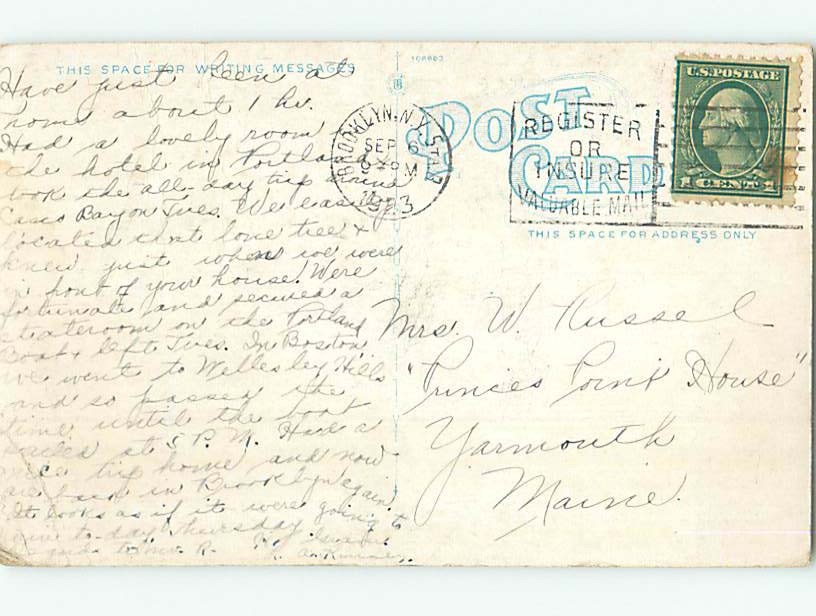 THIS SPACE FOR WRITING MESSAGES
Have just been at
home about 1 hr.
Had a lovely room in
the hotel in Portland
took the all-day trip
Casco Bay on Tues. We easily
located that lone tree &
knew just when we were
in front of your house. Were
fortunate and secured a
stateroom on the Portland
Boat & left Tues. In Boston
we went to Wellesley Hills
and so passed the
time until the boat
sailed at 5 P.M. Had a
nice trip home and now
are back in Brooklyn again.
It looks as if it were going to
to-day Thursday
to Mr. R.
108603
POST CARD
BROOKLYN, N.Y.
SEP 6
PM
1923
REGISTER
OR
INSURE
VALUABLE MAIL
U.S. POSTAGE
1 CENT 1
THIS SPACE FOR ADDRESS ONLY
Mrs. W. Russel
"Princes Point House"
Yarmouth
Maine.